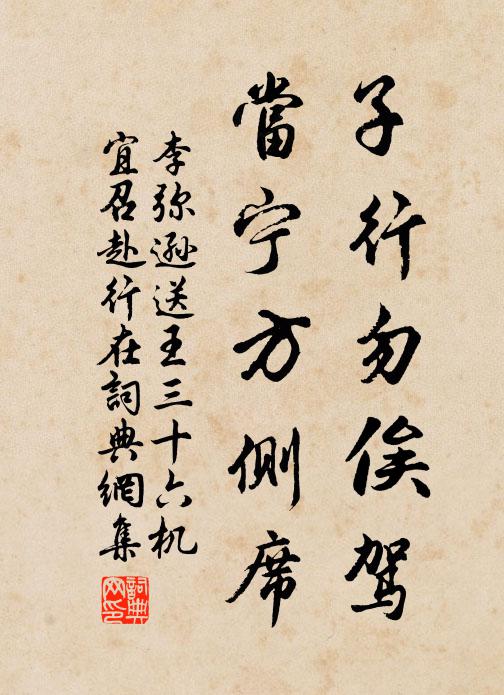 子行勿俟駕
當宁方側席
李弥遜送王三十六机
宜召赴行在詞典網集
詞典
网印